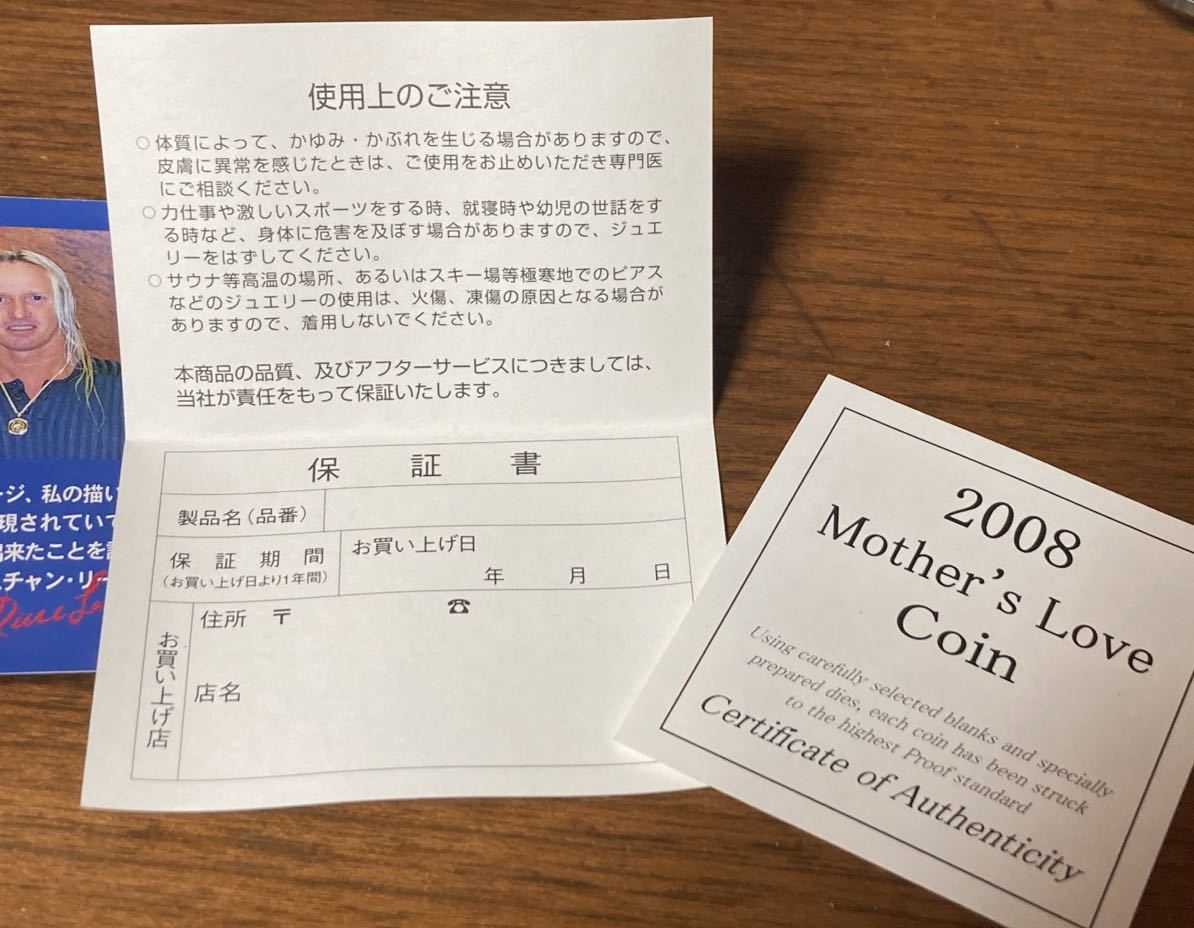 使用上のご注意
○体質によって、かゆみ・かぶれを生じる場合がありますので、
皮膚に異常を感じたときは、ご使用をお止めいただき専門医
にご相談ください。
○力仕事や激しいスポーツをする時、就寝時や幼児の世話をす
る時など、身体に危害を及ぼす場合がありますので、ジュエ
リーをはずしてください。
○サウナ等高温の場所、あるいはスキー場等極寒地でのピアス
などのジュエリーの使用は、火傷、凍傷の原因となる場合が
ありますので、着用しないでください。
本商品の品質、及びアフターサービスにつきましては、
当社が責任をもって保証いたします。
保証書
製品名(品番)
保証期間
(お買い上げ日より1年間)
お買い上げ日
年 月 日
お買い上げ店
住所 〒 ☎
店名
ージ、私の描い
現されていて
出来たことを
チャン・リー
2008
Mother's Love
Coin
Using carefully selected blanks and specially
prepared dies, each coin has been struck
to the highest Proof standard
Certificate of Authenticity